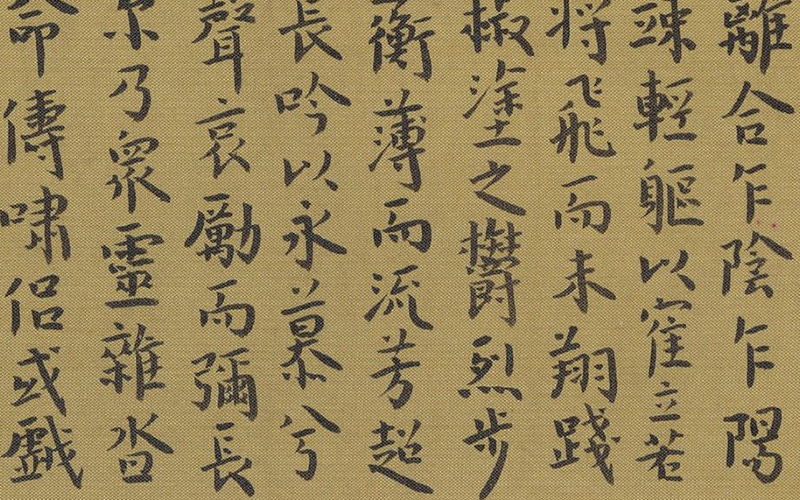 離合乍陰乍陽
竦輕軀以寉立若
將飛而未翔踐
椒塗之欝烈步
衡薄而流芳超
長吟以永慕兮
聲哀勵而彌長
尔乃衆靈雜沓
命儔嘯侶或戲